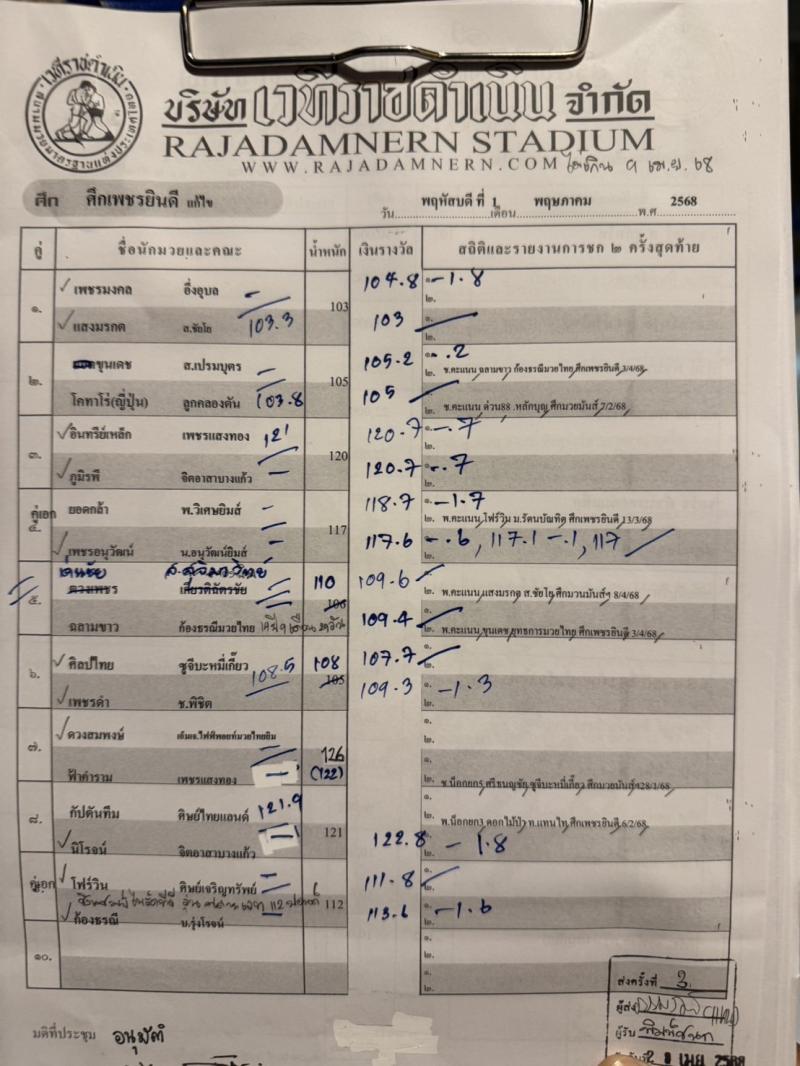 บริษัท เวทีราชดำเนิน จำกัด
RAJADAMNERN STADIUM
WWW.RAJADAMNERN.COM
ศึก ศึกเพชรยินดี แก้ไข
วัน พฤหัสบดี ที่ 1 เดือน พฤษภาคม พ.ศ 2568
คู่ ชื่อนักมวยและคณะ น้ำหนัก เงินรางวัล สถิติและรายงานการชก ๒ ครั้งสุดท้าย
๑. เพชรมงคล อึ่งอุบล 103 104.8 ๑. -1.8
๒.
แสงมรกต ส.ชัยโย 103.3 103 ๑.
๒.
๒. ขุนเดช ส.เปรมบุตร 105 105.2 ๑. -.2
๒. ช.คะแนน ฉลามขาว ก้องธรณีมวยไทย ศึกเพชรยินดี 3/4/68
โคทาโร่(ญี่ปุ่น) ลูกคลองตัน 103.8 105
๒. ช.คะแนน ด่วน88 .หลักบุญ ศึกมวยมันส์ 7/2/68
๓. อินทรีย์เหล็ก เพชรแสงทอง 121 120 120.7 ๑. -.7
๒.
ภูมิรพี จิตอาสาบางแก้ว 120.7 ๑. -.7
๒.
คู่เอก ๔. ยอดกล้า พ.วิเศษยิมส์ 117 118.7 ๑. -1.7
๒. พ.คะแนน โฟร์วิน ม.รัตนบัณฑิต ศึกเพชรยินดี 13/3/68
เพชรอนุวัฒน์ น.อนุวัฒน์ยิมส์ 117.6 -.6, 117.1 -.1, 117
๕. ดวงเพชร เกียรติฉัตรชัย 110 106 109.6
๒. พ.คะแนน แสงมรกต ส.ชัยโย ศึกมวนมันส์ฯ 8/4/68
ฉลามขาว ก้องธรณีมวยไทย 109.4
๒. พ.คะแนน ขุนเดช ยุทธการมวยไทย ศึกเพชรยินดี 3/4/68
๖. ศิลป์ไทย ซูจีบะหมี่เกี๊ยว 108.5 108 105 107.7 ๑.
๒.
เพชรดำ ช.พิชิต 109.3 ๑. -1.3
๒.
๗. ดวงสมพงษ์ 126 (122) ๑.
๒.
ฟ้าคำราม เพชรแสงทอง ๑.
๒. ช.น็อกยก5 ศรีธนญชัย ซูจีบะหมี่เกี๊ยว ศึกมวยมันส์ฯ28/1/68
๘. กัปตันทีม ศิษย์ไทยแลนด์ 121.9 121 ๑.
๒. พ.น็อกยก3 ดอกไม้ป่า ท.แทนไท ศึกเพชรยินดี 6/2/68
นิโรจน์ จิตอาสาบางแก้ว 122.8 ๑. -1.8
๒.
คู่เอก โฟร์วิน ศิษย์เจริญทรัพย์ 112 111.8 ๑.
๒.
ก้องธรณี บ.รุ่งโรจน์ 113.6 ๑. -1.6
๒.
๑๐. ๑.
๒.
๑.
๒.
มติที่ประชุม อนุมัติ
ส่งครั้งที่ 3
ผู้ส่ง
ผู้รับ